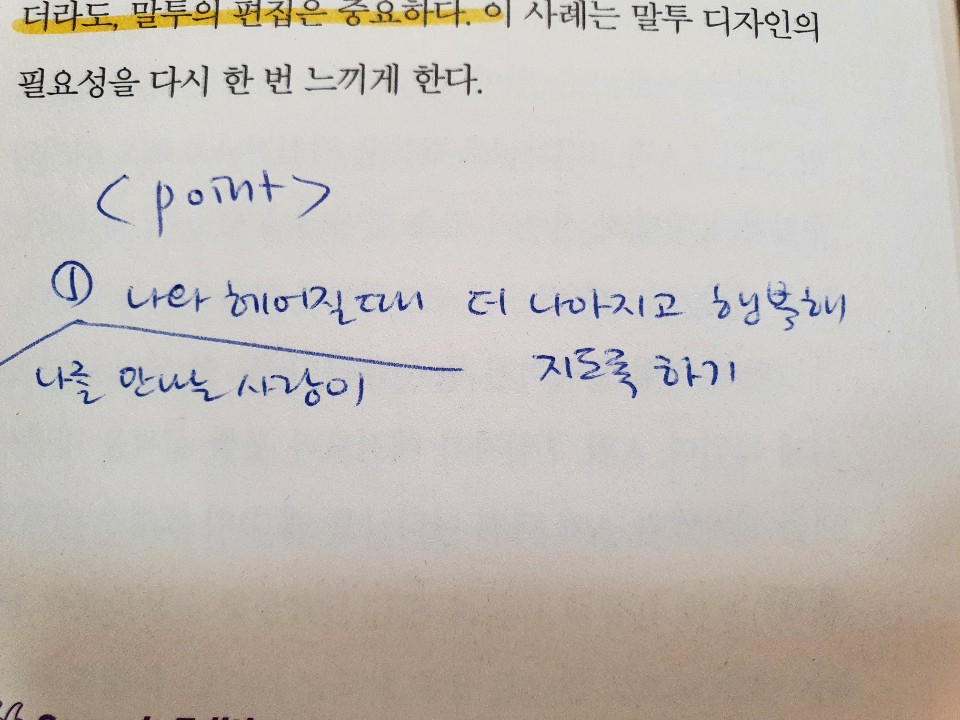 더라도, 말투의 편집은 중요하다. 이 사례는 말투 디자인의
필요성을 다시 한 번 느끼게 한다.
<point>
① 나와 헤어질때 더 나아지고 행복해
지도록 하기
나를 만나는 사람이